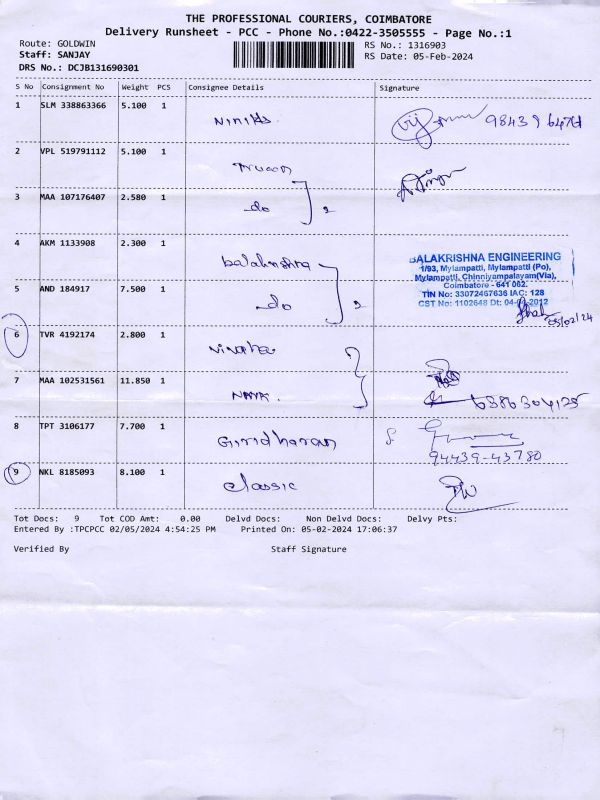 THE PROFESSIONAL COURIERS, COIMBATORE
Delivery Runsheet - PCC - Phone No.:0422-3505555 - Page No.:1
Route: GOLDWIN
RS No.: 1316903
Staff: SANJAY
RS Date: 05-Feb-2024
DRS No.: DCJB131690301
S No Consignment No Weight PCS Consignee Details Signature
1 SLM 338863366 5.100 1
2 VPL 519791112 5.100 1
3 MAA 107176407 2.580 1 do 2
4 AKM 1133908 2.300 1 balakrishna
BALAKRISHNA ENGINEERING
1/93, Mylampatti, Mylampatti (Po),
Mylampatti, Chinniyampalayam(Via),
Coimbatore - 641 062.
TIN No: 33072467636 IAC: 128
CST No: 1102648 Dt: 04-01-2012
5 AND 184917 7.500 1 do 2
05/02/24
6 TVR 4192174 2.800 1
7 MAA 102531561 11.850 1
8 TPT 3106177 7.700 1 Giridharan
94439-43780
9 NKL 8185093 8.100 1 classic
Tot Docs: 9 Tot COD Amt: 0.00 Delvd Docs: Non Delvd Docs: Delvy Pts:
Entered By :TPCPCC 02/05/2024 4:54:25 PM Printed On: 05-02-2024 17:06:37
Verified By Staff Signature